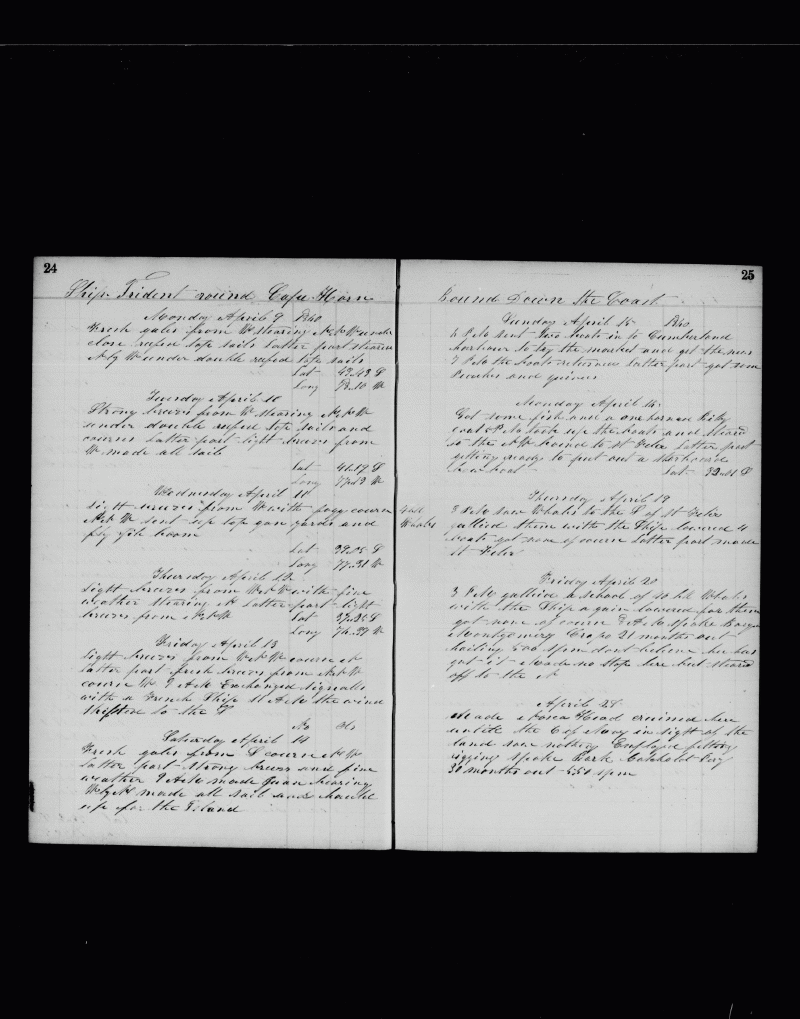 24
Ship Trident round Cape Horn
Monday April 9 1860
Fresh gales from W stearing N N W under
close reafed top sails latter part stearing
N by W under double reafed top sails
Lat 43.43 S
Long 78.10 W
Tuesday April 10
Strong breezes from W stearing N N W
under double reefed tope sails and
courses latter part light breezes from
W made all sail
Lat 41.19 S
Long
Wednesday April 11
Light breezes from W with fogg course
N N W sent up top gan yards and
fly gib boom
Lat 39.05 S
Long 77.31 W
Thursday April 12
Light breezes from W N W with fine
weather stearing N latter part light
breezes from N N W Lat S
Long 76.39 W
Friday April 13
Light breezes from W N W course N
latter part fresh breezes from N N W
course W 7 A M Exchanged Signalls
with a French Ship 11 A M the wind
shifton to the S
No Ob
Saturday April 14
Fresh gales from S course N W
latter part strong breezes and fine
weather 9 A M made Juan bearing
W by N made all sail and hauld
up for the Island
25
bound Down the Coast
Sunday April 15 1860
4 P M sent two boats in to Cumberland
harbour to try the market and get the news
7 P M the boats returned latter part got som
Peaches and quinces
Monday April 16
Got some fish and a one horned Billy
goat 5 P M took up the boats and steard
to the N W bound to St Felix latter part
getting ready to put out a starboard
bow boat Lat S
Thursday April 19
3 P M saw Whales to the S of St Felix
gallied them with the Ship lowered 4
boats got none of course latter part made
St Felix
Whales
Friday April 20
3 P M gallied a school of 40 bbl Whales
with the Ship a gain lowered for them
got none of course 8 A M spoke Barque
Montgomery Crapo 21 months out
hailing 500 spm dont believe he has
got it Made no stop here but steard
off to the N
April 29
Made Nasca Head cruised here
untill the 6 of May in sight of the
land saw nothing Employed fitting
rigging spoke Bark
30 months out 550 spm